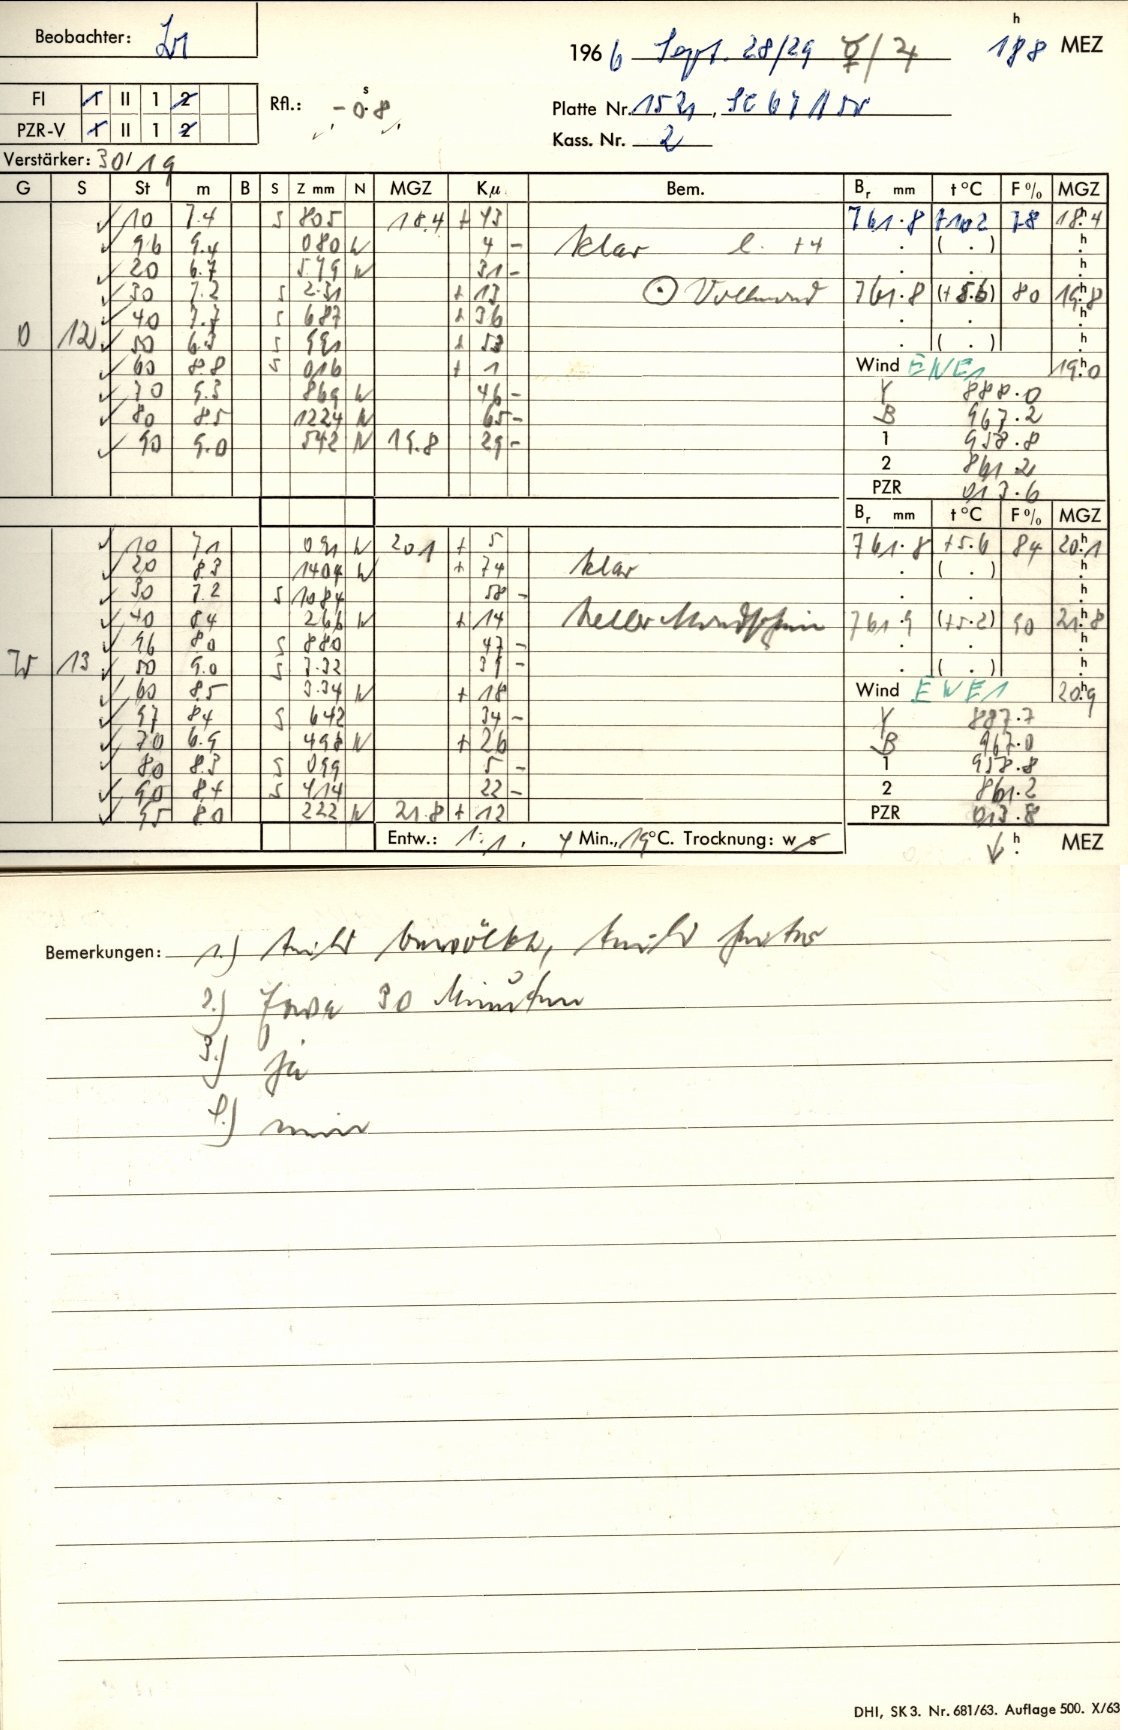 Beobachter:
h
196 6 Sept. 28/29 ☿/♃ 18 8 MEZ
FI I II 1 2
PZR-V I II 1 2
Rfl.: -0.8 s
Platte Nr. 1521,
Kass. Nr. 2
Verstärker: 30/19
G S St m B S Z mm N MGZ Kμ Bem. Br mm t °C F % MGZ
10 7.4 S 805 18.4 + 43 761.8 +10.2 78 18.4
96 9.4 080 N 4 - klar l. +4 ( . ) h
20 6.7 5.79 N 31 - h
30 7.2 S 2.31 + 13 ⊙ Vollmond 761.8 (+5.6) 80 19.8
40 7.7 S 687 + 36 h
O 12 50 6.3 S 991 + 53 ( . ) h
60 8.8 S 016 + 1 Wind ENE1 19.0
70 9.3 869 N 46 - Y 888.0
80 8.5 1224 N 65 - B 967.2
90 9.0 542 N 19.8 29 - 1 958.8
2 861.2
PZR 013.6
Br mm t °C F % MGZ
10 7.1 091 N 20.1 + 5 761.8 +5.6 84 20.1
20 8.3 1404 N + 74 klar ( . ) h
30 7.2 S 1084 58 - h
40 8.4 266 N + 14 heller Mondschein 761.9 (+5.2) 90 21.8
96 8.0 S 880 47 - h
W 13 50 9.0 S 7.32 39 - ( . ) h
60 8.5 3.34 N + 18 Wind ENE1 20.9
97 8.4 S 642 34 - Y 887.7
70 6.9 498 N + 26 B 967.0
80 8.3 S 099 5 - 1 958.8
90 8.4 S 414 22 - 2 861.2
95 8.0 222 N 21.8 + 12 PZR 013.8
Entw.: 1:1, 4 Min., 19 °C. Trocknung: w s h MEZ
Bemerkungen: 1.) teils bewölkt, teils heiter
2.) Etwa 30 Minuten
3.) ja
4.) nein
DHI, SK 3. Nr. 681/63. Auflage 500. X/63